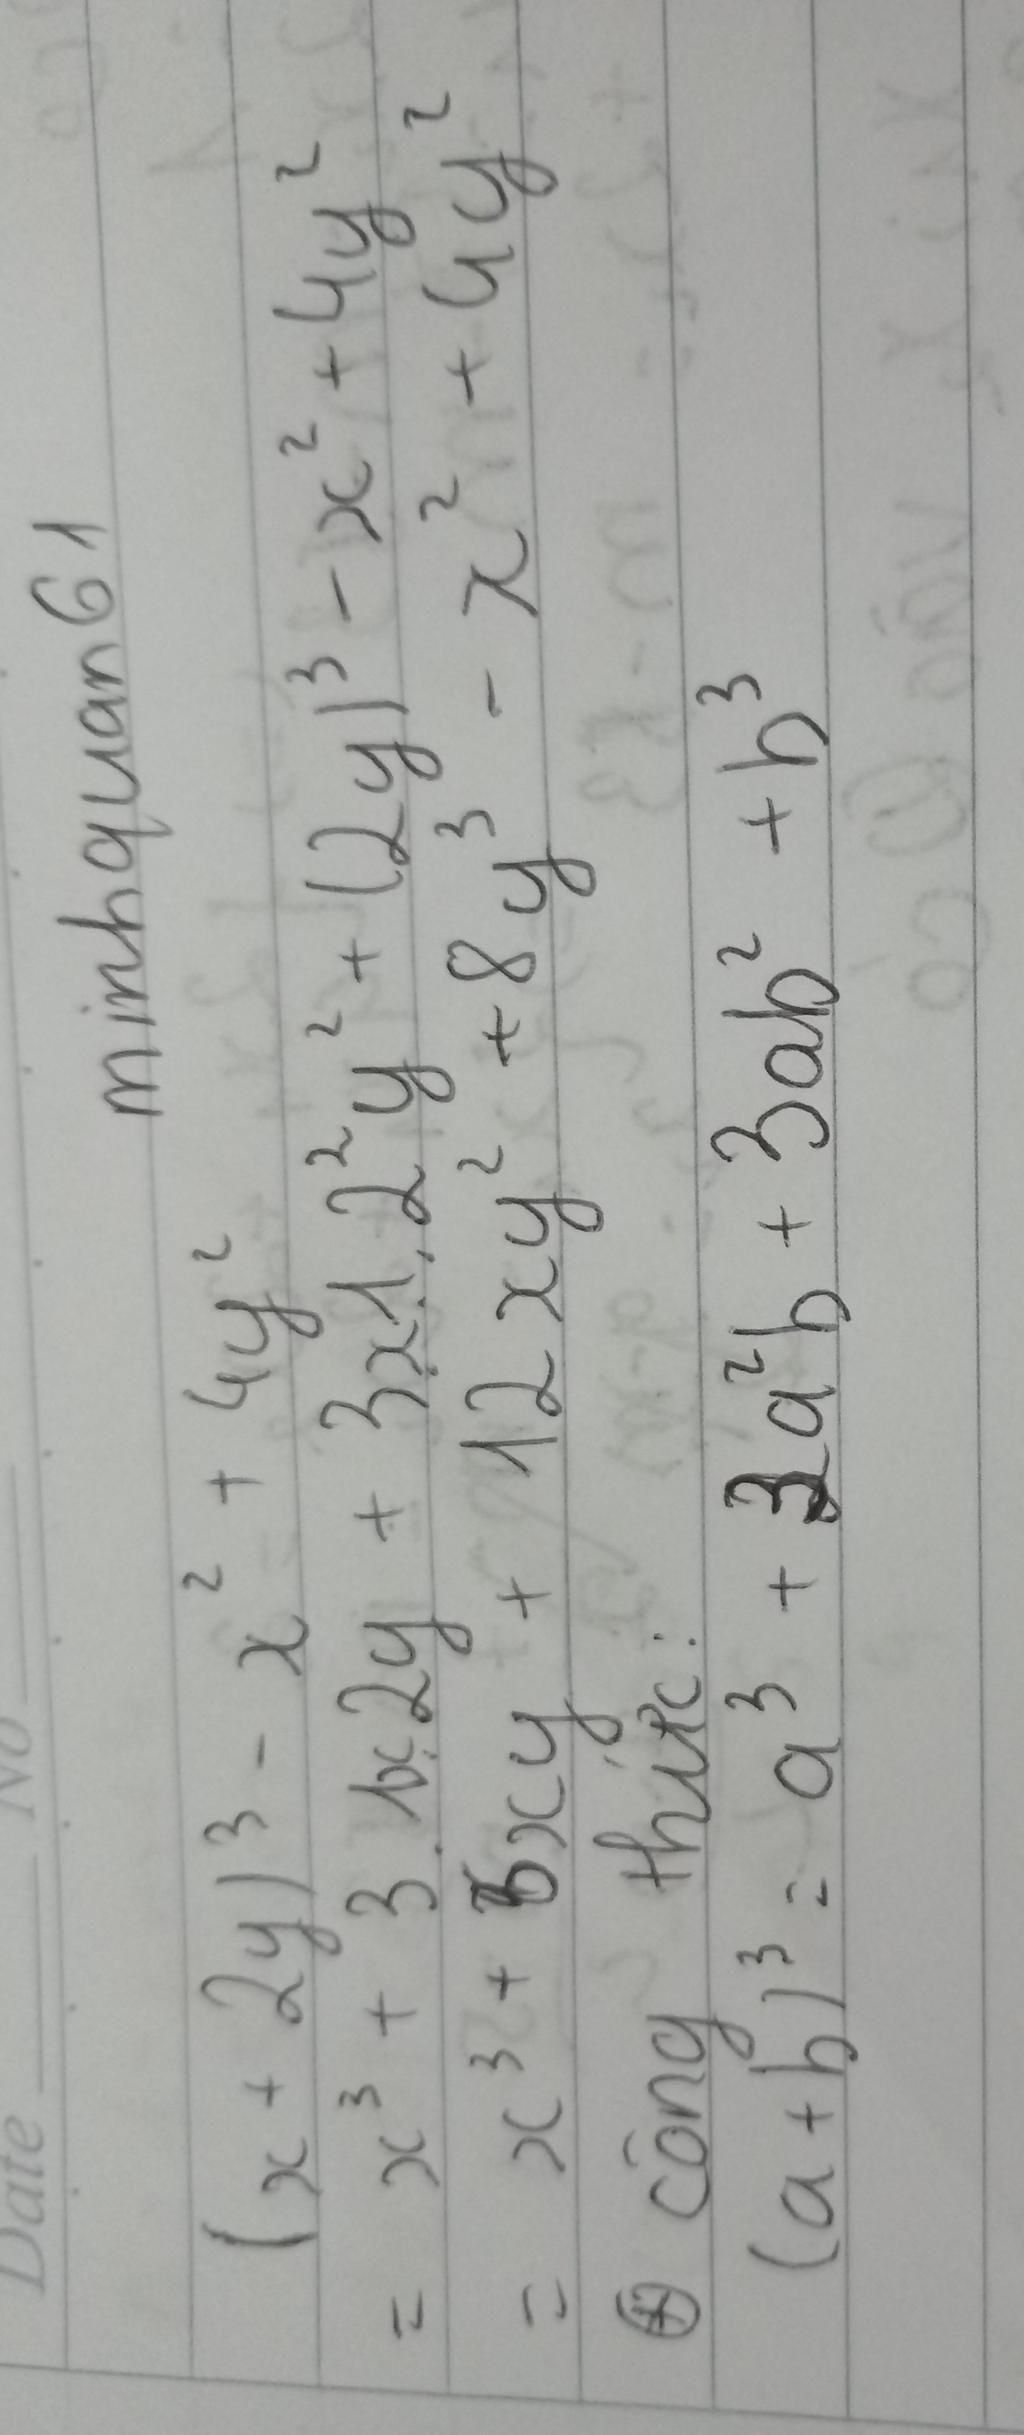 Date No
minhquan61
(x + 2y)³ - x² + 4y²
= x³ + 3.1x.2y + 3x1.2²y² + (2y)³ - x² + 4y²
= x³ + 6xy + 12xy² + 8y³ - x² + 4y²
⊕ công thức:
(a + b)³ = a³ + 3a²b + 3ab² + b³